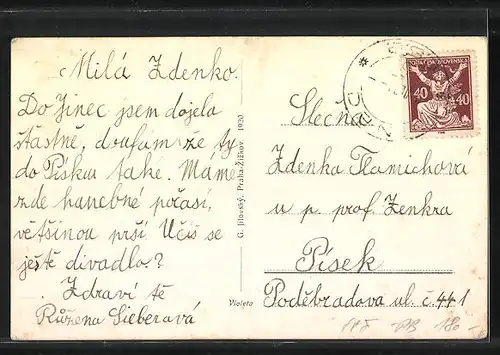 Milá Zdenko.
Do Jinec jsem dojela
šťastně, doufám že ty
do Písku také. Máme
zde hanebné počasí,
většinou prší. Učíš se
ještě divadlo?
Zdraví tě
Růžena Sieberavá
G. Jilovský, Praha-Žižkov. 1920
Violeta
40 40
Slečna
Zdenka Tlamichová
u p. prof. Zenkra
Písek
Poděbradova ul. č. 441